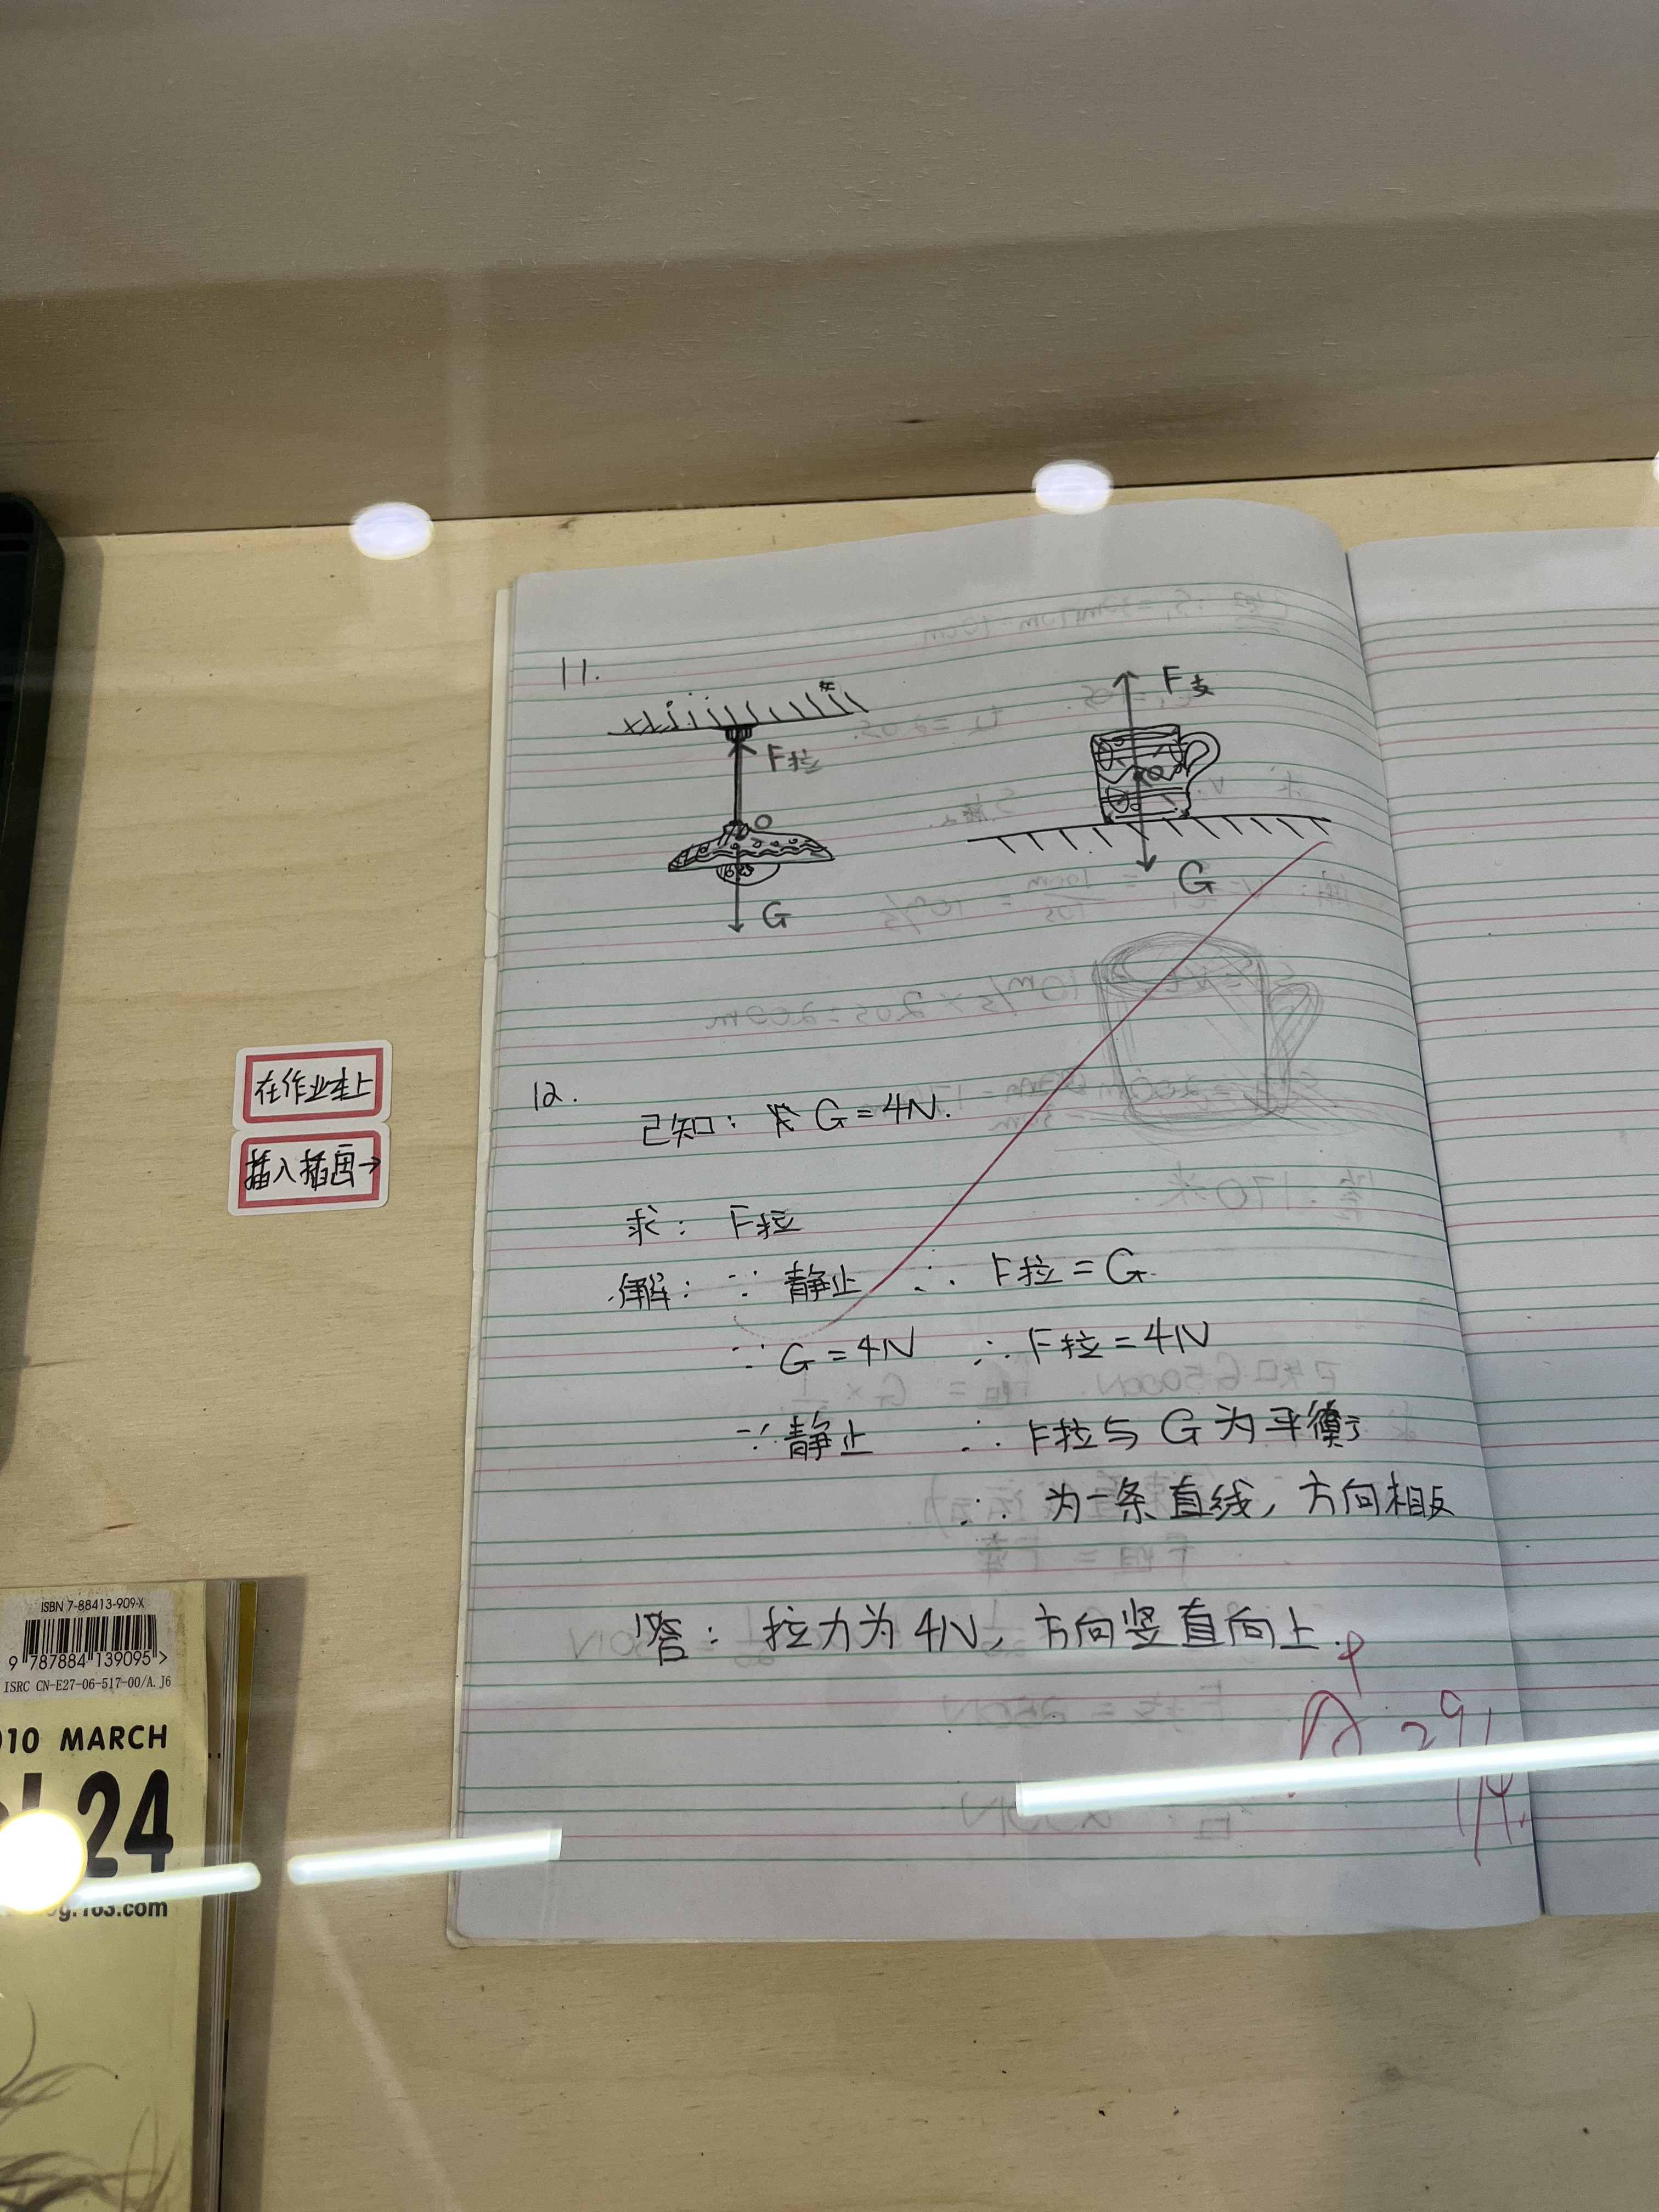 11.
F拉
O
G
F支
G
在作业本上
插入插画→
12.
已知: G=4N.
求: F拉
解: ∵ 静止 ∴ F拉=G.
∵ G=4N ∴ F拉=4N
∵ 静止 ∴ F拉与G为平衡
∴ 为一条直线, 方向相反
答: 拉力为4N, 方向竖直向上.
ISBN 7-88413-909-X
9 787884 139095 >
ISRC CN-E27-06-517-00/A.J6
10 MARCH
24
g.163.com